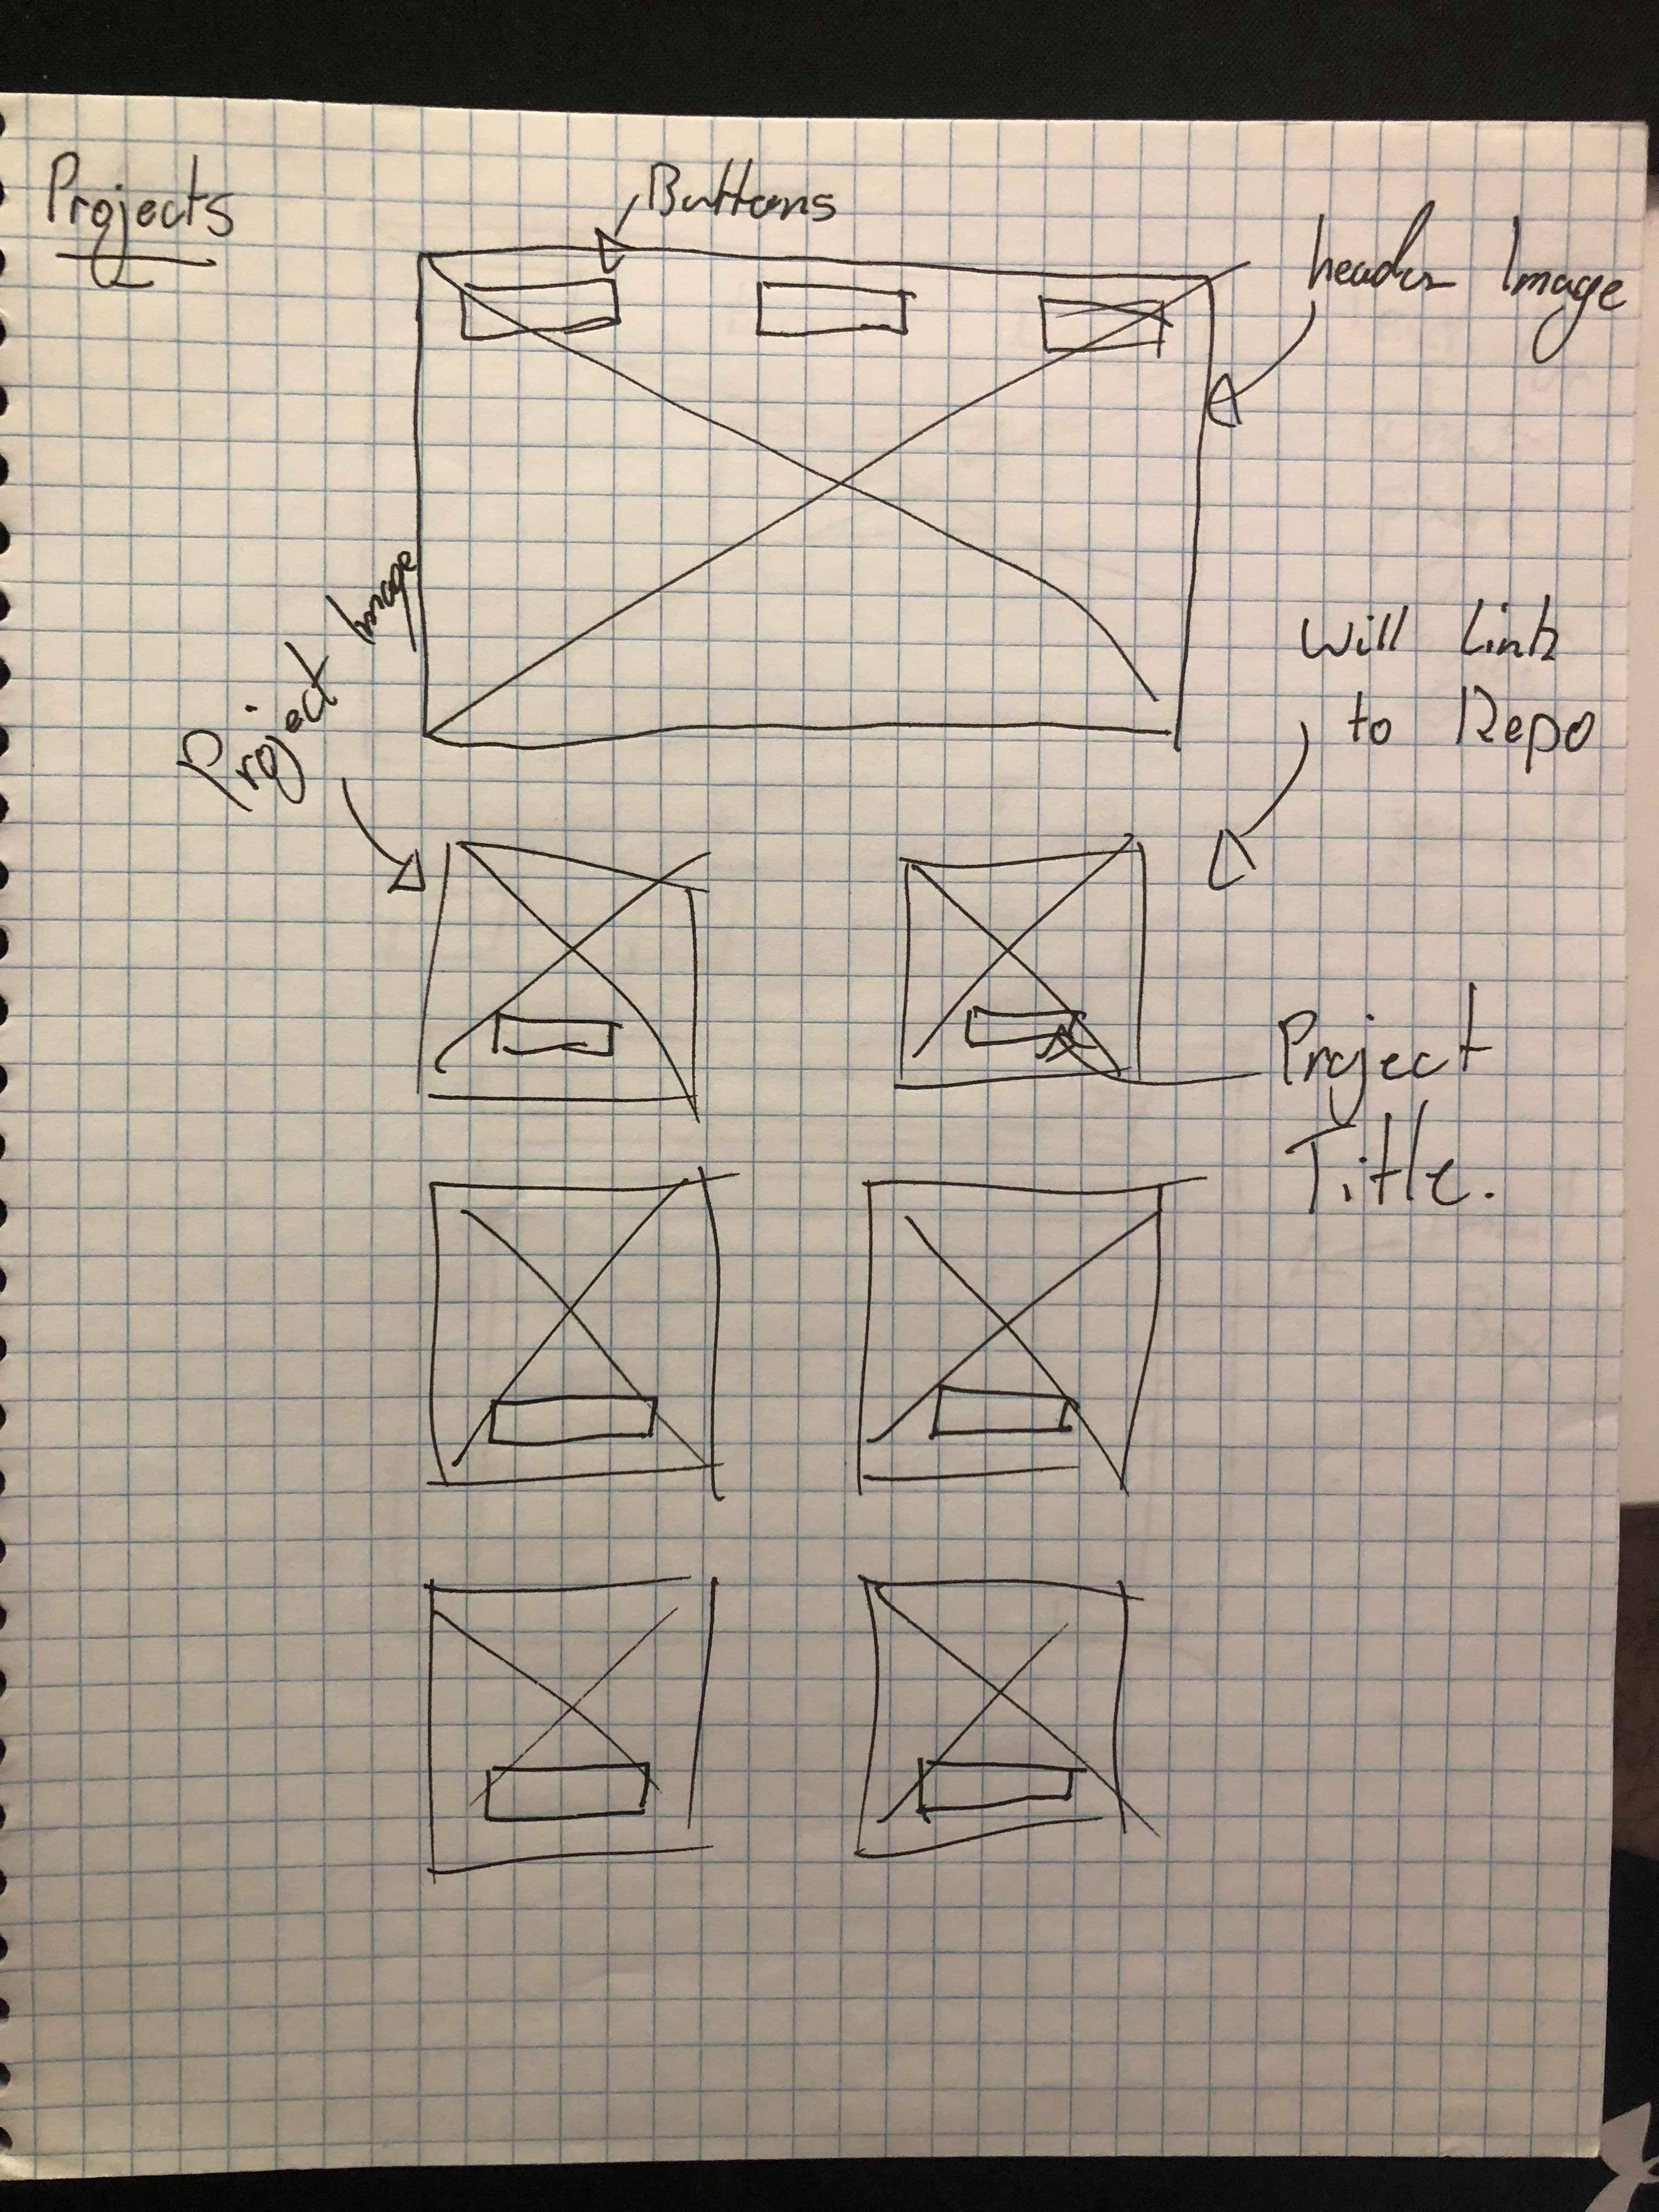 Projects
Buttons
header Image
Project Image
Will Link
to Repo
Project
Title.